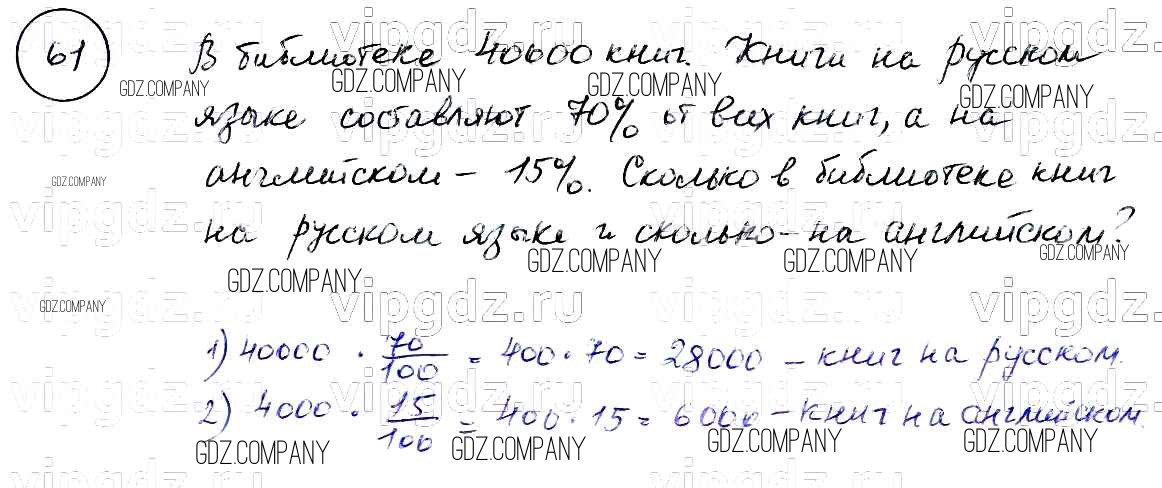 61
В библиотеке 40000 книг. Книги на русском
языке составляют 70% от всех книг, а на
английском - 15%. Сколько в библиотеке книг
на русском языке и сколько - на английском?
1) 40000 · 70/100 = 400 · 70 = 28000 - книг на русском.
2) 4000 · 15/100 = 400 · 15 = 6000 - книг на английском.
vipgdz.ru
GDZ.COMPANY